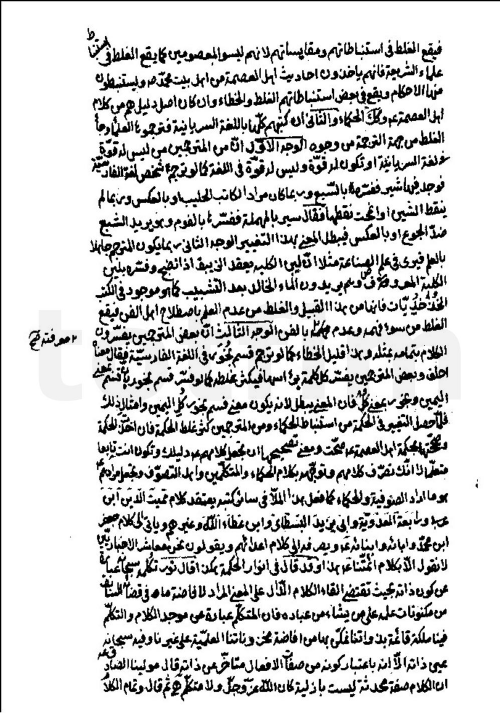 فيقع الغلط في استنباطاتهم ومقايساتهم لانهم ليسوا بمعصومين كما يقع الغلط في
علماء الشريعة فانهم ياخذون احاديث اهل العصمة من اهل بيت محمد ص ويستنبطون
منها الاحكام ويقع في بعض استنباطاتهم الغلط والخطاء وان كان اصل دليلهم من كلام
اهل العصمة ع وكك الحكماء والثاني ان كتبهم كلها باللغة السريانية فترجموها العلماء وجاء
الغلط من جهة الترجمة من وجوه الوجه الاول ان من المترجمين من ليس له قوة
في لغة السريانية او تكون له قوة وليس له قوة في اللغة كما لو ترجم شخص لغة الفارسية
فوجد فيها شير ففسرها بالسبع وربما كان مراد الكاتب الحليب او بالعكس وربما لم
ينقط الشين او انمحت نقطها فقال سير بالمهملة ففسرها بالفوم وهو يريد الشبع
ضد الجوع او بالعكس فيبطل المعنى بهذا التغيير الوجه الثاني ربما يكون المترجم جاهلا
بالعلم فيرى في علم الصناعة مثلا ان لبن الكلبة يعقد الزيبق اذا نضج وفسره بلبن
الكلبة المعروفة وهم يريدون الماء الخالد بعد التشبيب كما هو موجود في الكتب
فانها من هذا القبيل والغلط من عدم العلم باصطلاح اهل الفن فيقع
الغلط من سوء فهمه وعدم معرفته بالفن الوجه الثالث ان بعض المترجمين يفسرون
الكلام بتمامه بمثله وهذا قليل الخطاء كما لو ترجم قسم بخور في اللغة الفارسية فقال معناه
احلف وبعض المترجمين يفسر كل كلمة براسها فيكثر غلطه كما لو فسر قسم بخور باقسم بمعنى
اليمين وبخور بمعنى كل فان المعنى يبطل لانه يكون معنى قسم بخور كل اليمين وامثال ذلك
فلما حصل التغيير في الحكمة من استنباط الحكماء ومن المترجمين كثر غلط الحكمة فان اخذت الحكمة
وصححتها بحكمة اهل العصمة ع صحت ومعنى تصحيحها ان تجعل كلامهم ع دليلك وتكون انت تابعا
متعلما لا انك تصرف كلامهم وتوجهه بكلام الحكماء والمتكلمين واهل التصوف وتجعل مرادهم
هو ما اراد الصوفية والحكماء كما فعل هذا الملا في سائر كتبه يعتقد كلام مميت الدين ابن
عربي ورابعة العدوية وابي يزيد البسطامي وابن عطاء الله وغيرهم وياتي الى كلام جعفر
ابن محمد وابائه وابنائه ع ويصرفه الى كلام اعدائهم ويقولون نحن معاشر الامامية
لا نقول الا بكلام ائمتنا ع هذا وقد قال في انوار الحكمة هكذا قال نور تكلمه سبحانه عبارة
عن كون ذاته بحيث تقتضي القاء الكلام الدال على المعنى المراد لافاضة ما في قضائه السابق
من مكنونات علمه على من يشاء من عباده فان المتكلم عبارة عن موجد الكلام والتكلم
فينا ملكة قائمة بذواتنا نتمكن بها من افاضة مخزوناتنا العلمية على غيرنا وفيه سبحانه
عين ذاته الا انه باعتبار كونه من صفات الافعال متاخر عن ذاته قال مولينا الصادق ع
ان الكلام صفة محدثة ليست بازلية كان الله عز وجل ولا متكلم ثم قال وتمام الكلام